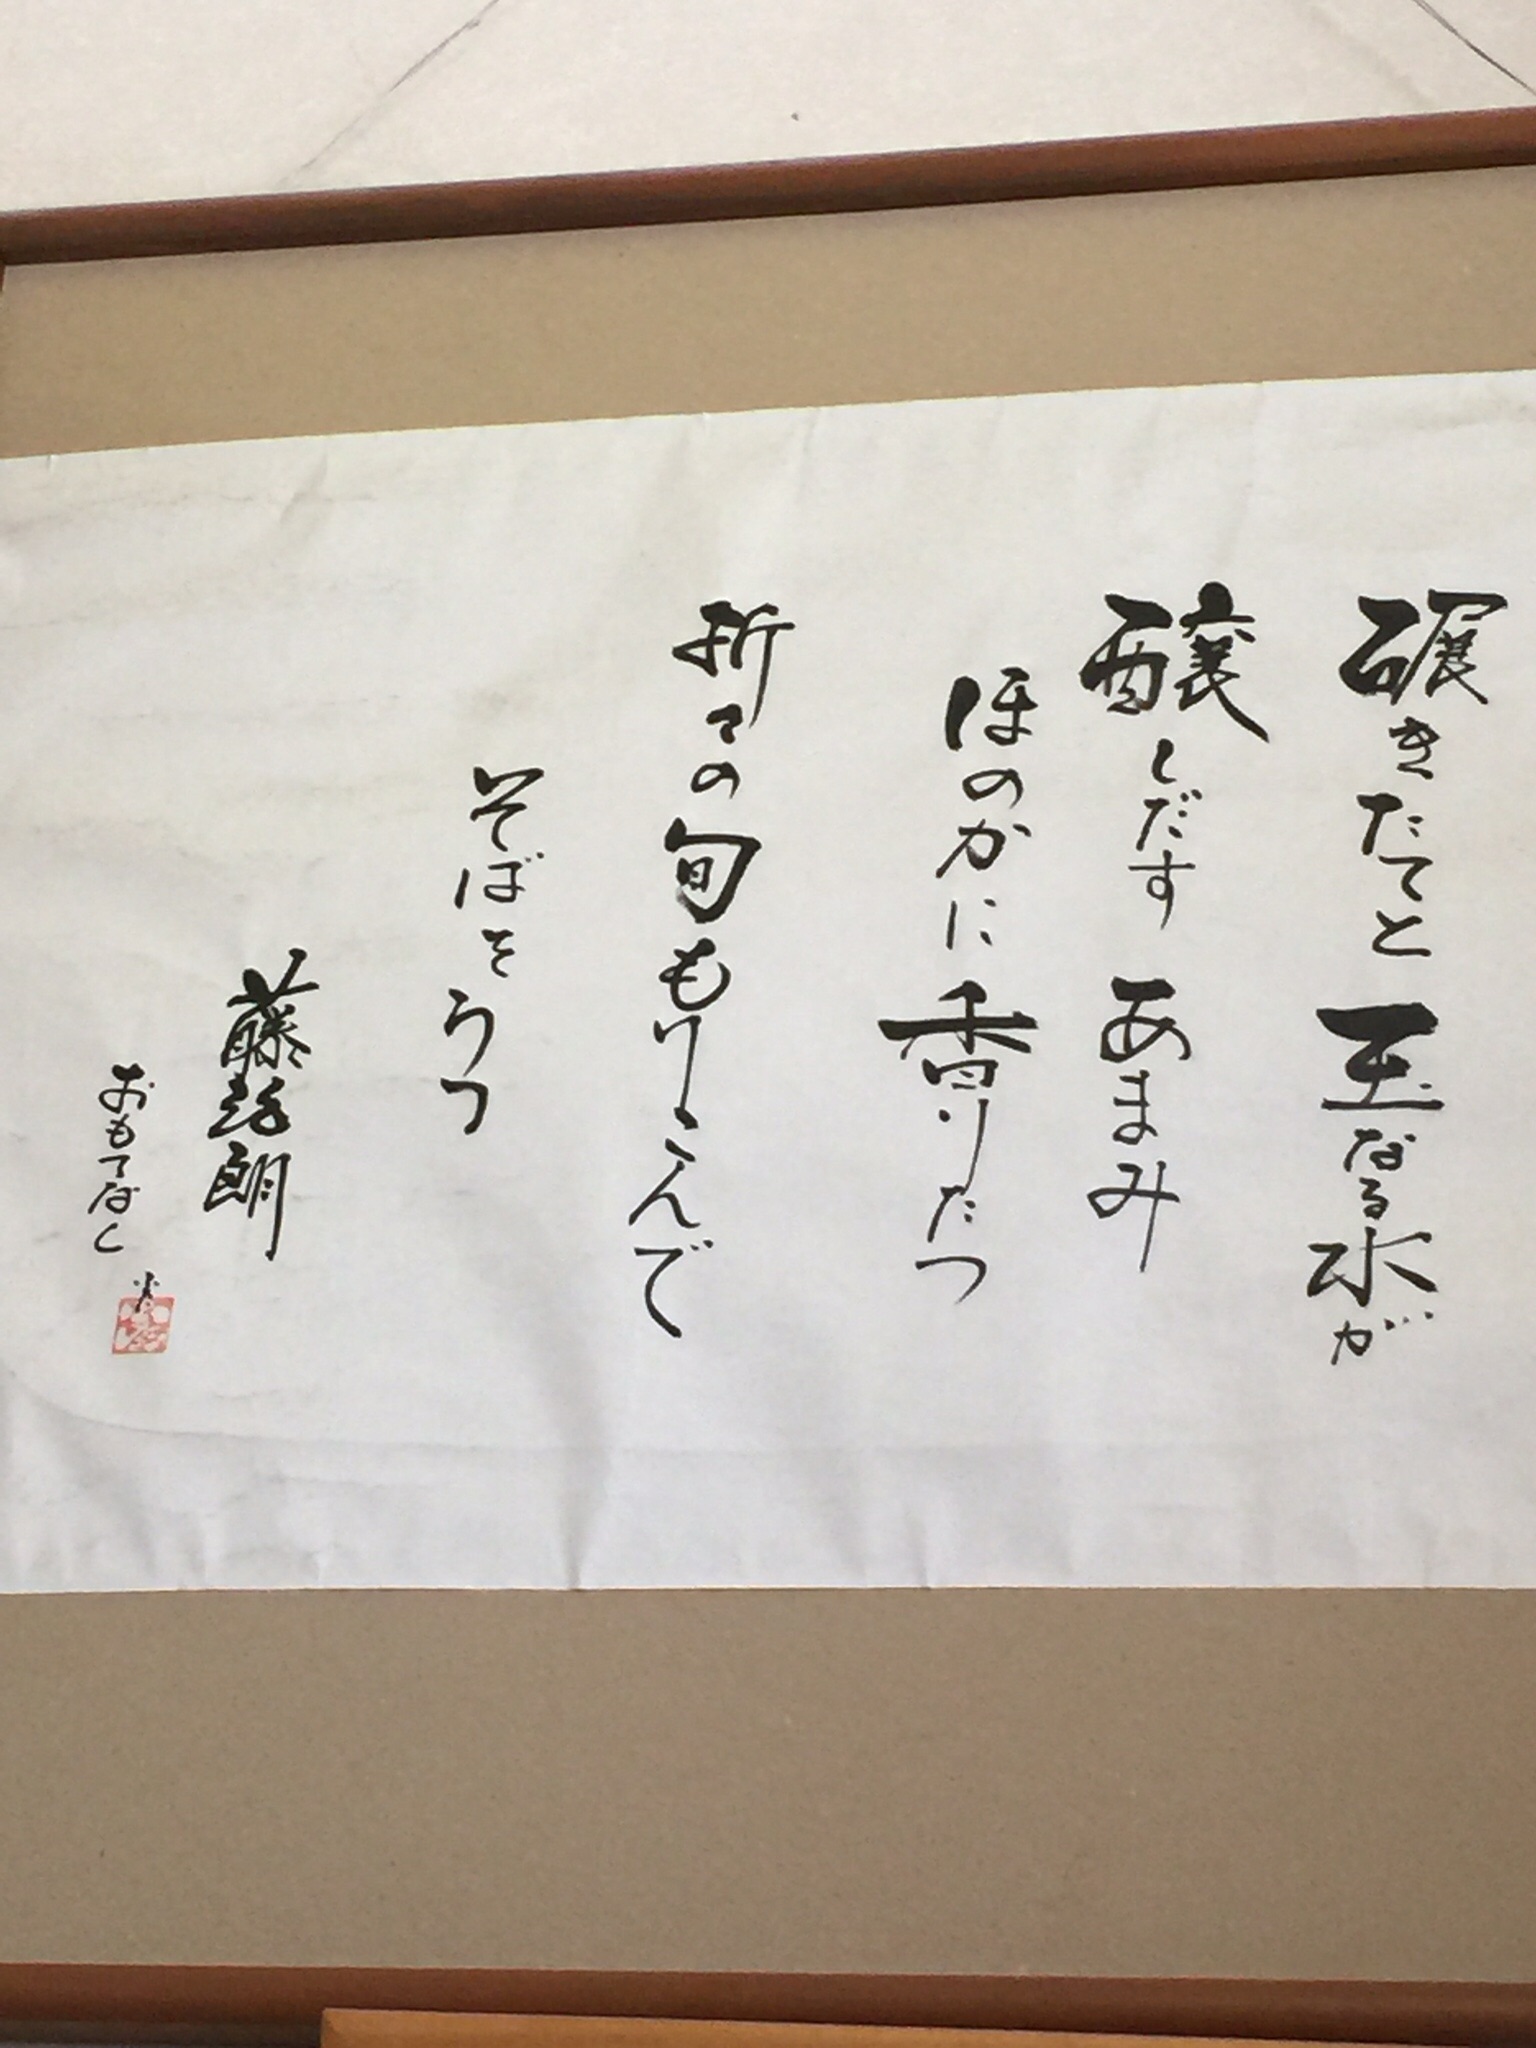 碾きたてと玉なる水が
醸しだす あまみ
ほのかに香りたつ
折々の旬もりこんで
そばそうつ
おもてなし